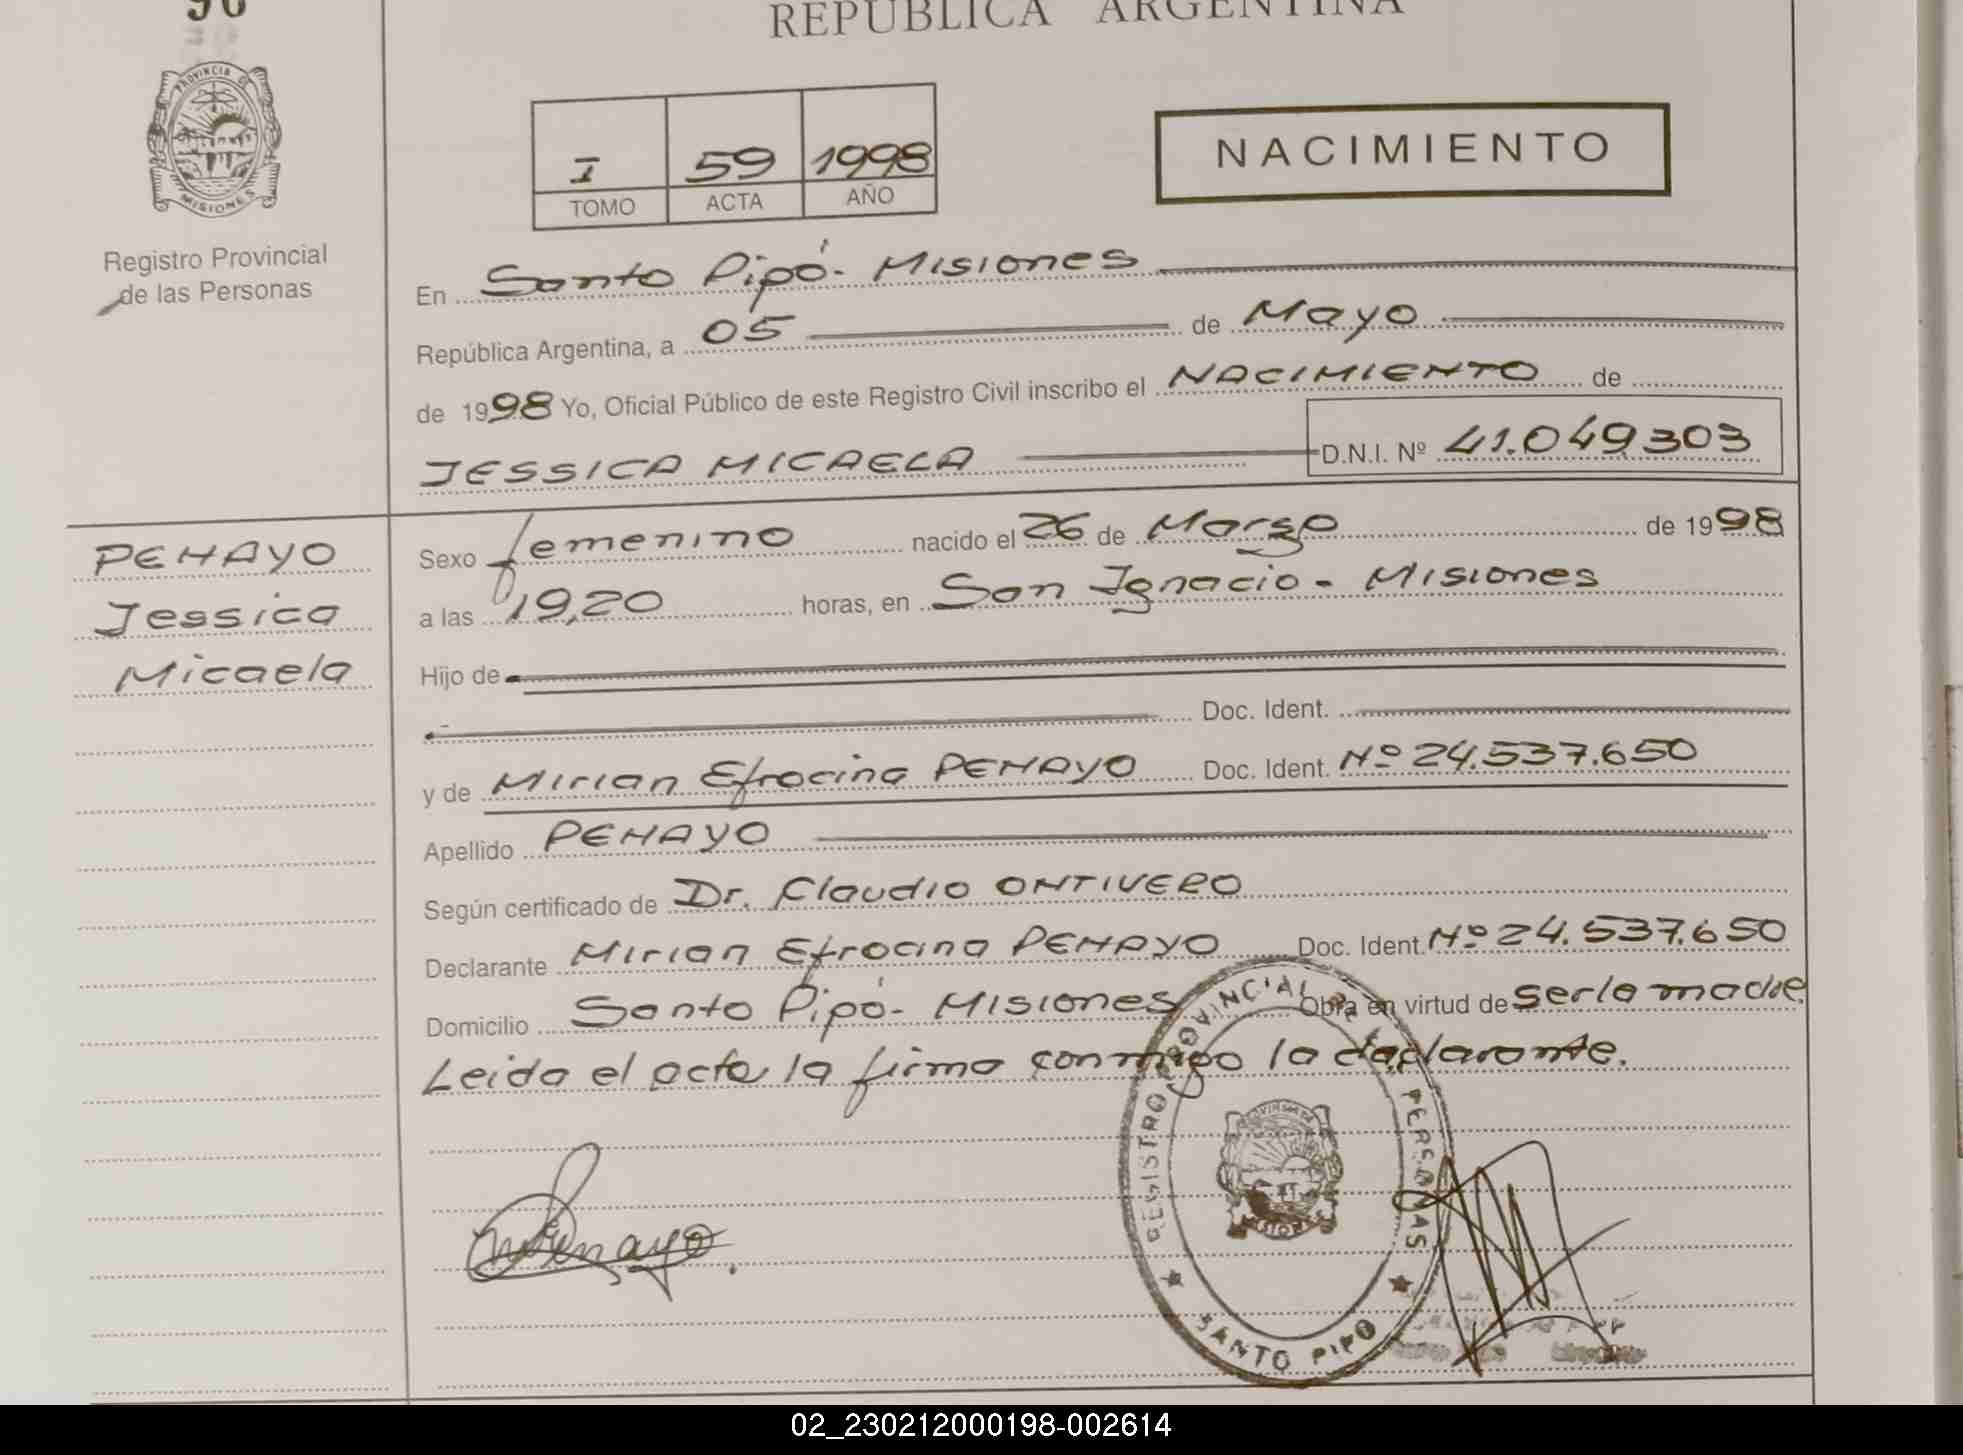 96
REPUBLICA ARGENTINA
PROVINCIA DE
MISIONES
Registro Provincial
de las Personas
I 59 1998
TOMO ACTA AÑO
NACIMIENTO
En Santo Pipó - Misiones
República Argentina, a 05 de Mayo
de 1998 Yo, Oficial Público de este Registro Civil inscribo el NACIMIENTO de
JESSICA MICAELA D.N.I. Nº 41.049.303
PENAYO
Jessica
Micaela
Sexo femenino nacido el 26 de Marzo de 1998
a las 19,20 horas, en San Ignacio - Misiones
Hijo de
Doc. Ident.
y de Mirian Efrocina PENAYO Doc. Ident. Nº 24.537.650
Apellido PENAYO
Según certificado de Dr. Claudio ONTIVERO
Declarante Mirian Efrocina PENAYO Doc. Ident. Nº 24.537.650
Domicilio Santo Pipó - Misiones Obra en virtud de ser la madre.
Leida el acta la firma conmigo la declarante.
REGISTRO PROVINCIAL DE LAS PERSONAS
MISIONES
SANTO PIPO
Penayo
02_230212000198-002614